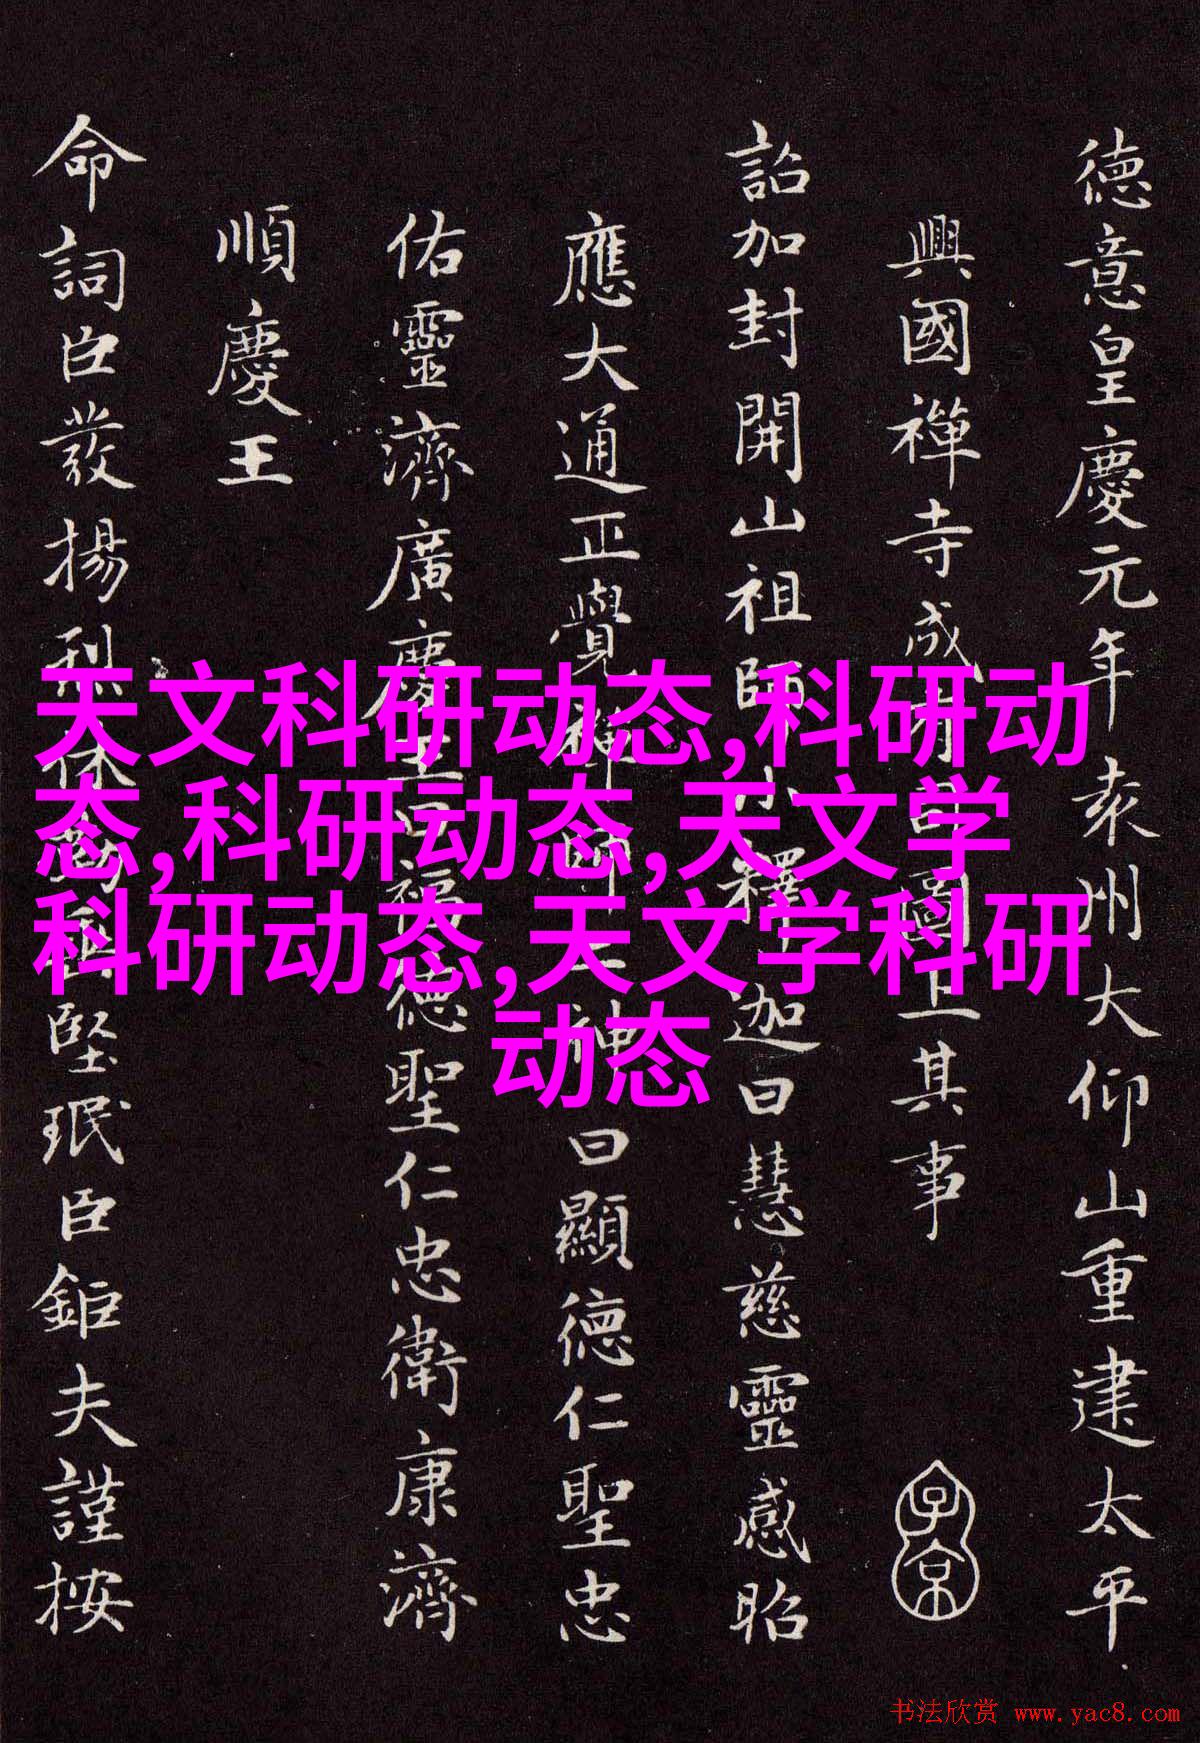 德意皇慶元年袁州大仰山重建太平
興國禪寺成有司圖上其事
詔加封開山祖師小釋迦曰慧慈靈感昭
應大通正覺禪師二神曰顯德仁聖忠
佑靈濟廣慶王曰福德聖仁忠衛康濟
順慶王
命詞臣發揚堅珉臣鉅夫謹按
子京
天文科研动态,科研动
态,科研动态,天文学
科研动态,天文学科研
动态
书法欣赏 www.yac8.com